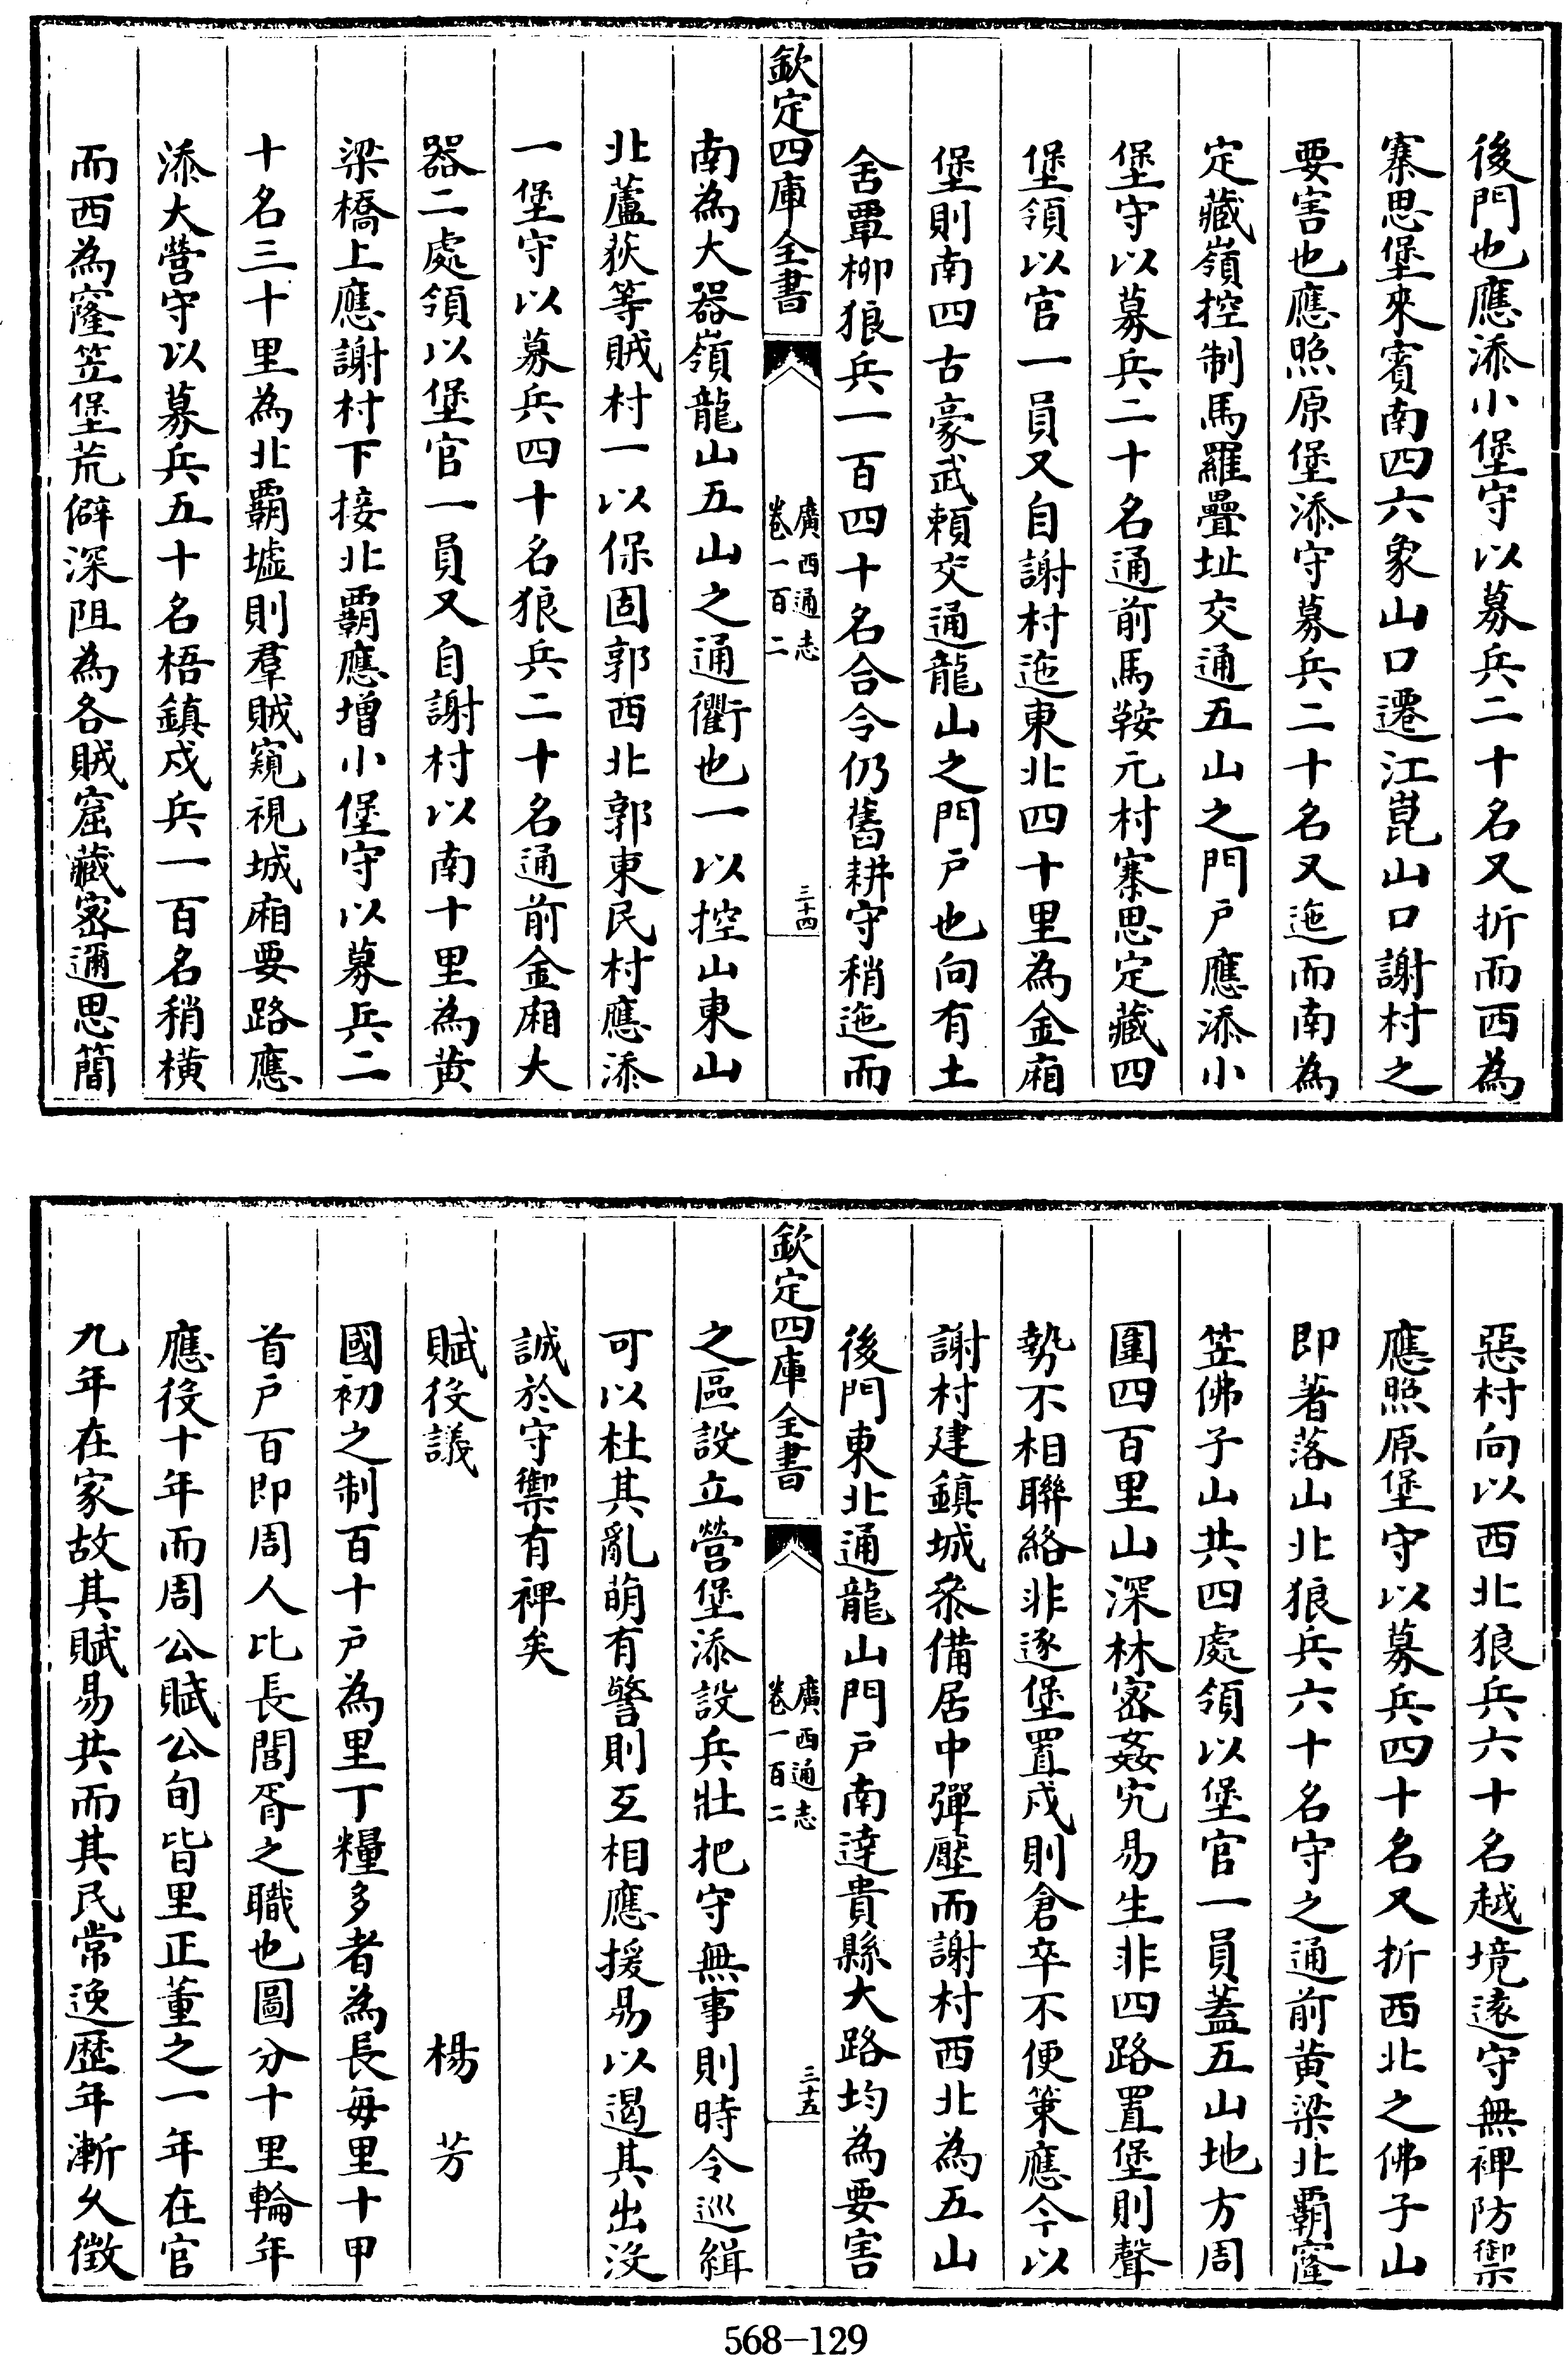 後門也應添小堡守以募兵二十名又折而西為
寨思堡來賓南四六象山口遷江崑山口謝村之
要害也應照原堡添守募兵二十名又迤而南為
定藏嶺控制馬羅疊址交通五山之門戸應添小
堡守以募兵二十名通前馬鞍元村寨思定藏四
堡領以官一員又自謝村迤東北四十里為金廂
堡則南四古豪武賴交通龍山之門戸也向有土
舍覃柳狼兵一百四十名合令仍舊耕守稍迤而
欽定四庫全書
廣西通志
卷一百二
三十四
南為大器嶺龍山五山之通衢也一以控山東山
北蘆荻等賊村一以保固郭西北郭東民村應添
一堡守以募兵四十名狼兵二十名通前金廂大
器二處領以堡官一員又自謝村以南十里為黄
梁橋上應謝村下接北覇應增小堡守以募兵二
十名三十里為北覇墟則羣賊窺視城廂要路應
添大營守以募兵五十名梧鎮戍兵一百名稍横
而西為窿笠堡荒僻深阻為各賊窟藏密邇思簡
惡村向以西北狼兵六十名越境遠守無裨防禦
應照原堡守以募兵四十名又折西北之佛子山
即著落山北狼兵六十名守之通前黄梁北覇窿
笠佛子山共四處領以堡官一員蓋五山地方周
圍四百里山深林密姦宄易生非四路置堡則聲
勢不相聯絡非逐堡置戍則倉卒不便策應今以
謝村建鎮城叅備居中彈壓而謝村西北為五山
後門東北通龍山門戸南達貴縣大路均為要害
欽定四庫全書
廣西通志
卷一百二
三十五
之區設立營堡添設兵壯把守無事則時令巡緝
可以杜其亂萌有警則互相應援易以遏其出沒
誠於守禦有裨矣
賦役議　楊芳
國初之制百十戸為里丁糧多者為長每里十甲
首戸百即周人比長閭胥之職也圖分十里輪年
應役十年而周公賦公旬皆里正董之一年在官
九年在家故其賦易共而其民常逸歴年漸久徵
568-129